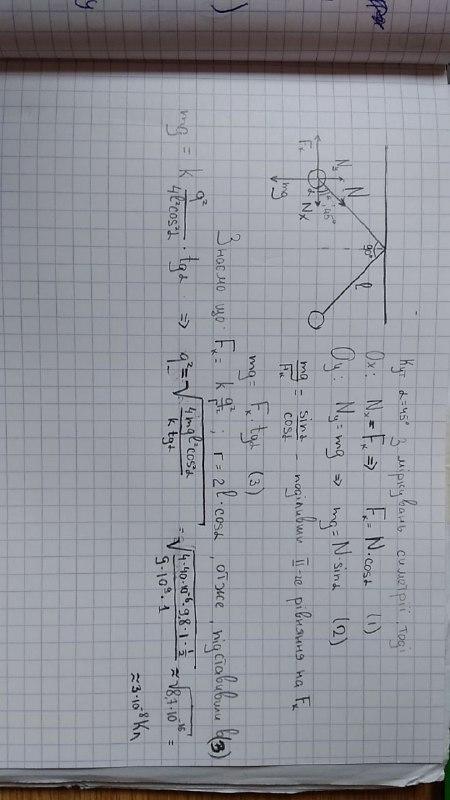 Кут α=45° з міркувань симетрії, тоді
Ox: Nx = Fк ⇒ Fк = N·cosα (1)
Oy: Ny = mg ⇒ mg = N·sinα (2)
mg/Fк = sinα/cosα - поділивши II-ге рівняння на Fк
mg = Fк tgα (3)
Знаємо що: Fк = k q²/r² ; r = 2l·cosα, отже, підставивши в (3)
mg = k q²/4l²cos²α · tgα ⇒ q = √4mgl²cos²α/k tgα = √4·40·10⁻⁶·9,8·1·½/9·10⁹·1 ≈ √8,7·10⁻¹⁶ =
≈ 3·10⁻⁸ Кл
N
Ny
α=45°
Fк
Nx
mg
90°
l